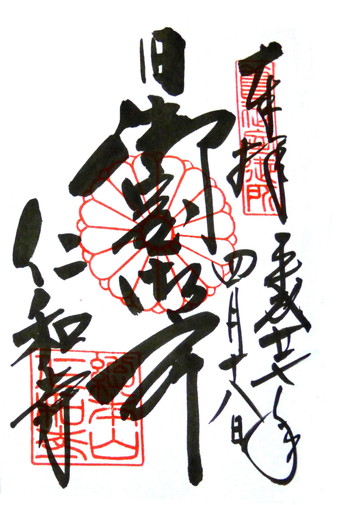 奉拝
平成廿七年
四月十八日
旧
御室御所
仁和寺